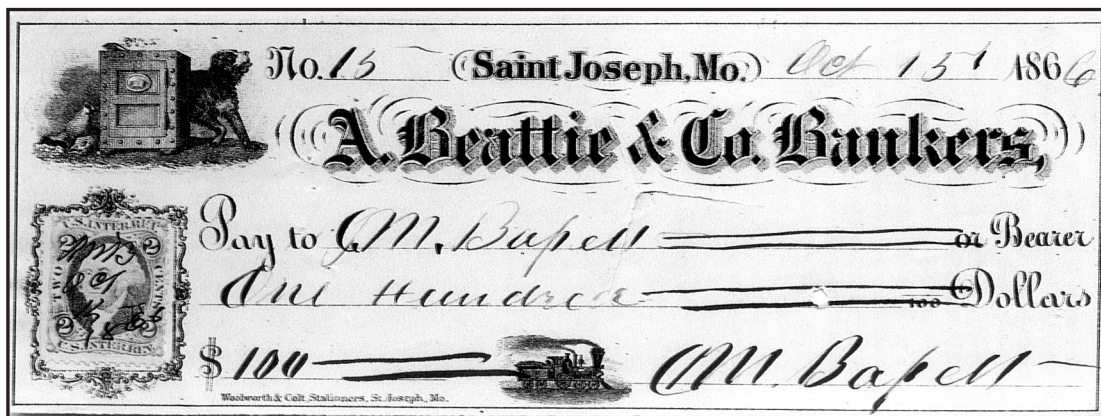 No. 15 Saint Joseph, Mo. Oct 15t 1866
A. Beattie & Co. Bankers,
Pay to M. Baſsett or Bearer
One Hundred 100 Dollars
$ 100 M. Baſsett
Woolworth & Colt, Stationers, St. Joseph, Mo.
U.S. INTER. REV.
2 2
TWO CENTS
Oct
2 2
U.S. INTER. REV.